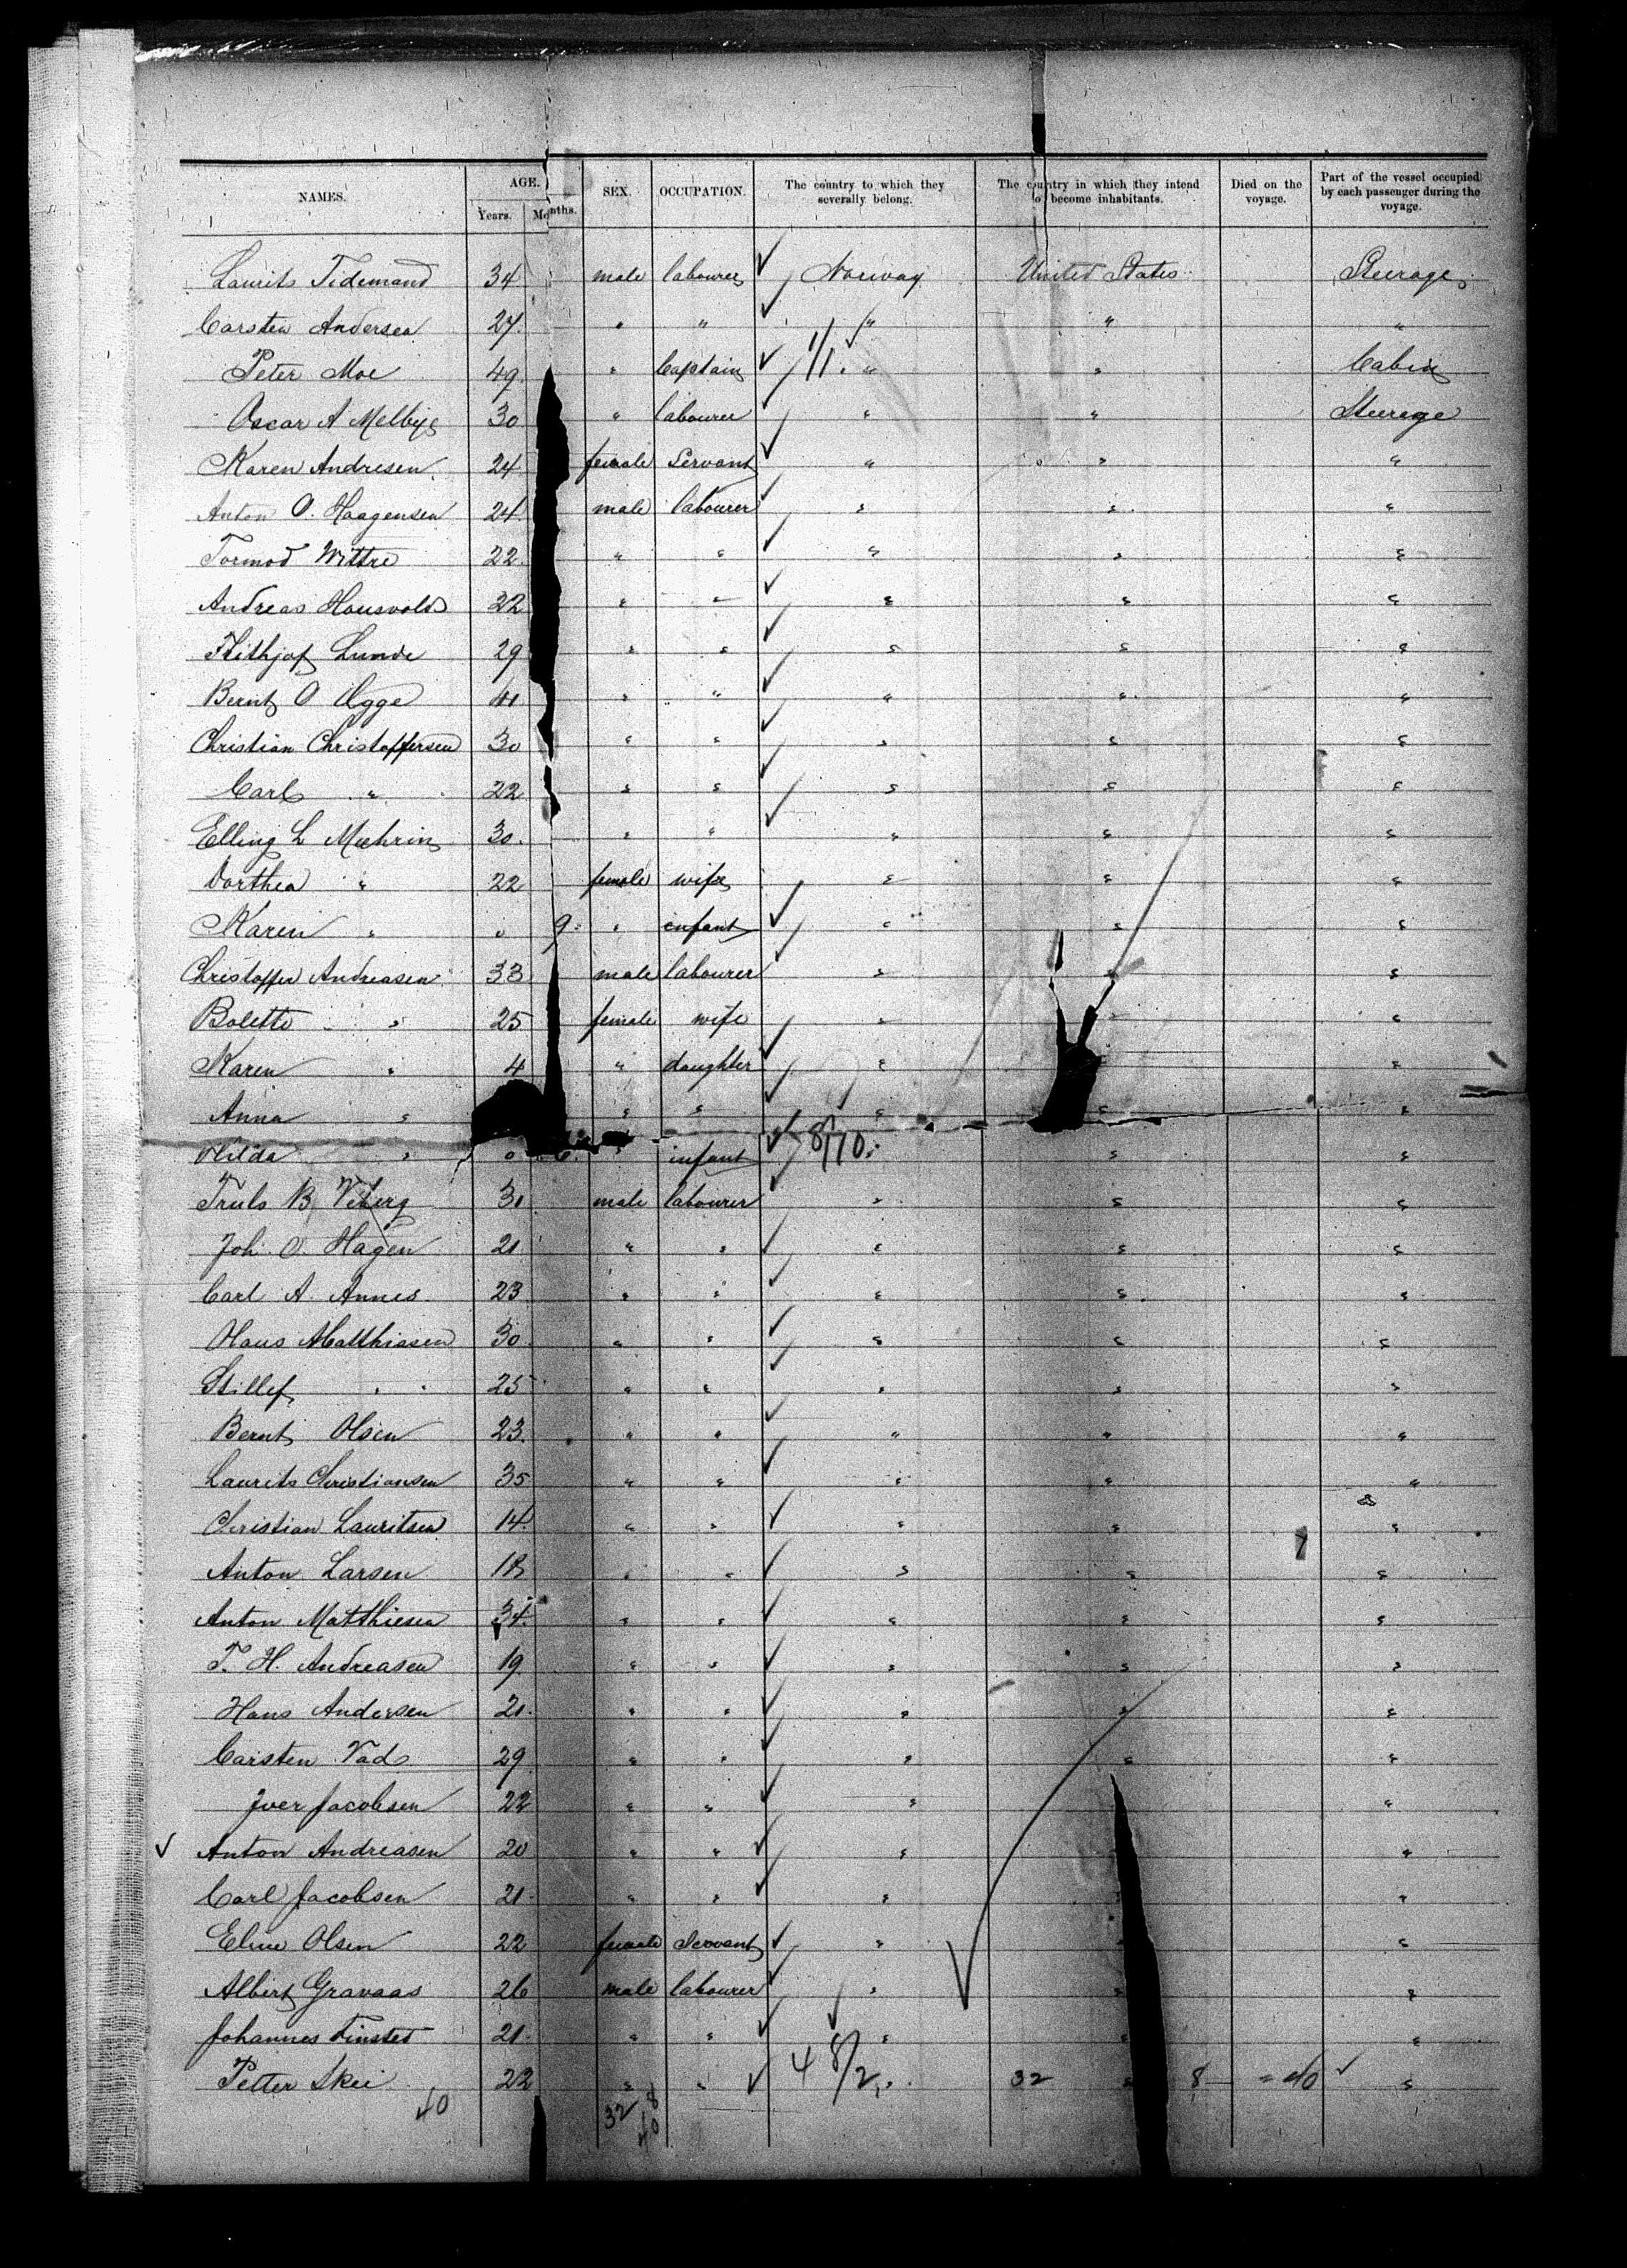 NAMES. AGE. Years. Months. SEX. OCCUPATION. The country to which they severally belong. The country in which they intend to become inhabitants. Died on the voyage. Part of the vessel occupied by each passenger during the voyage.
Laurits Tidemand 34 male labourer Norway United States Steerage
Carsten Andersen 27. " " " " "
Peter Moe 49 " Captain 1/1. " " Cabin
Oscar A Melbye 30 " labourer " " Steerage
Karen Andresen 24 female Servant " " "
Anton O. Haagensen 24 male labourer " " "
Tormod Wittre 22 " " " " "
Andreas Housvold 22 " " " " "
Frithjof Lunde 29 " " " " "
Bernt O Ugge 41 " " " " "
Christian Christoffersen 30 " " " " "
Carl " 22 " " " " "
Elling L Moehrin 30. " " " " "
Dorthea " 22 female wife " " "
Karen " 0 9 " infant " " "
Christoffer Andreasen 33 male labourer " " "
Bolette " 25 female wife " " "
Karen " 4 " daughter " " "
Anna " " " " " "
Hilda " 0 " infant 8/10. " "
Truls B. Veberg 31 male labourer " " "
Joh. O. Hagen 21. " " " " "
Carl A. Annes 23 " " " " "
Hans Matthiasen 30. " " " " "
Stillef " 25 " " " " "
Bernt Olsen 23. " " " " "
Laurits Christiansen 35 " " " " "
Christian Lauritsen 14. " " " " "
Anton Larsen 18 " " " " "
Anton Matthiesen 34. " " " " "
T. H. Andreasen 19 " " " " "
Hans Andersen 21. " " " " "
Carsten Vad 29 " " " " "
Iver Jacobsen 22 " " " "
Anton Andreasen 20 " " " "
Carl Jacobsen 21 " " " "
Eline Olsen 22 female Servant " "
Albert Gravaas 26 male labourer " " "
Johannes Finsted 21. " " " " "
Petter Skei 22 " " 4 8/2. " 32 " 8 = 40 "
40 32 8
40